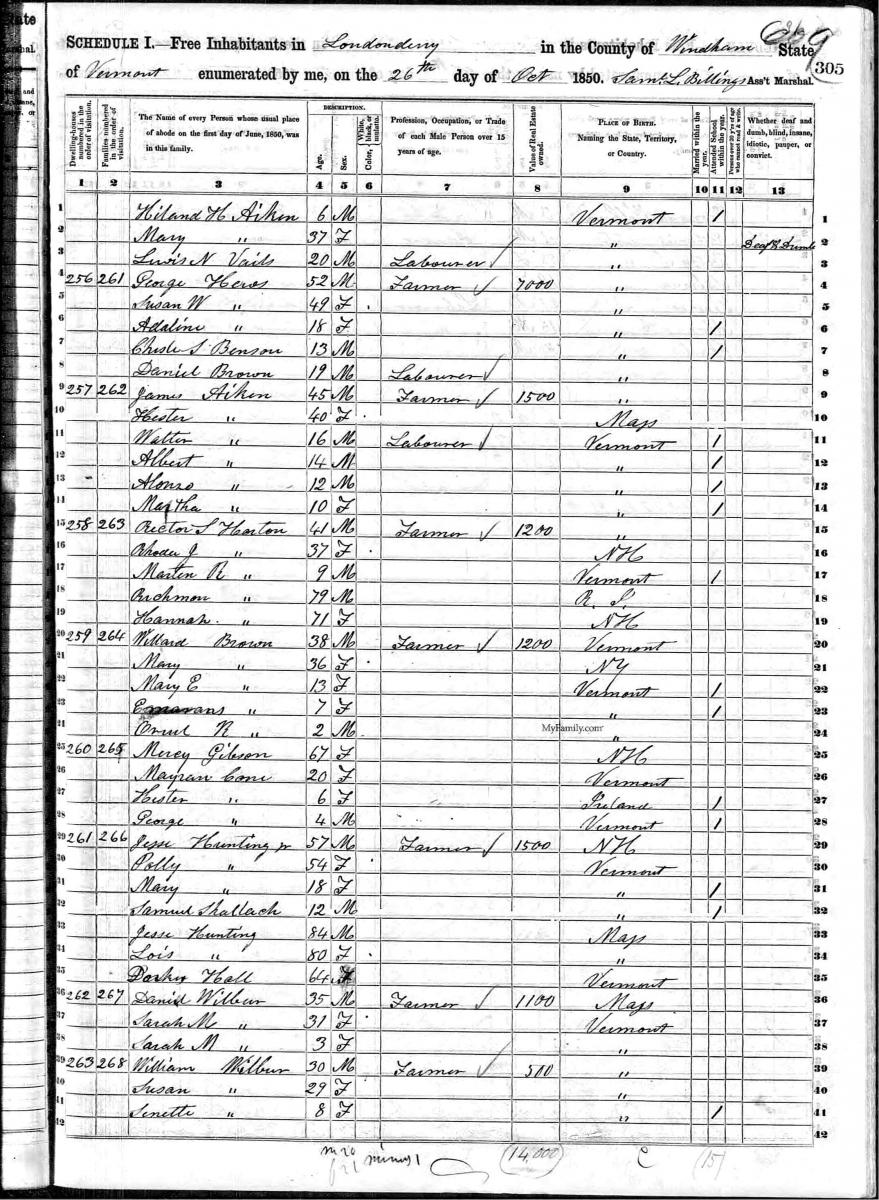 SCHEDULE I.—Free Inhabitants in Londonderry in the County of Windham State
of Vermont enumerated by me, on the 26th day of Oct 1850. Saml. L. Billings Ass't Marshal. 305
Dwelling-houses numbered in the order of visitation. Families numbered in the order of visitation. The Name of every Person whose usual place of abode on the first day of June, 1850, was in this family. DESCRIPTION. Age. Sex. Color, White, black, or mulatto. Profession, Occupation, or Trade of each Male Person over 15 years of age. Value of Real Estate owned. PLACE OF BIRTH. Naming the State, Territory, or Country. Married within the year. Attended School within the year. Persons over 20 y'rs of age who cannot read & write. Whether deaf and dumb, blind, insane, idiotic, pauper, or convict.
1 2 3 4 5 6 7 8 9 10 11 12 13
1 Hiland H Aiken 6 M Vermont / 1
2 Mary " 37 F " Deaf & Dumb 2
3 Lewis N Vails 20 M Labourer ✓ " 3
4 256 261 George 52 M Farmer ✓ 7000 " 4
5 Susan W " 49 F " 5
6 Adaline " 18 F " / 6
7 S Benson 13 M " / 7
8 Daniel Brown 19 M Labourer ✓ " 8
9 257 262 James Aiken 45 M Farmer ✓ 1500 " 9
10 Hester " 40 F Mass 10
11 Walter " 16 M Labourer ✓ Vermont / 11
12 Albert " 14 M " / 12
13 Alonzo " 12 M " / 13
14 Martha " 10 F " / 14
15 258 263 Rector S Horton 41 M Farmer ✓ 1200 " 15
16 Rhoda J " 37 F NH 16
17 Marten R " 9 M Vermont / 17
18 Richmon " 79 M R. I. 18
19 Hannah " 71 F NH 19
20 259 264 Willard Brown 38 M Farmer ✓ 1200 Vermont 20
21 Mary " 36 F NY 21
22 Mary E " 13 F Vermont / 22
23 " 7 F " / 23
24 R " 2 M " 24
MyFamily.com
25 260 265 Mercy Gibson 67 F NH 25
26 Cone 20 F Vermont 26
27 Hester " 6 F Ireland / 27
28 George " 4 M Vermont / 28
29 261 266 Jesse Hunting jr 57 M Farmer ✓ 1500 NH 29
30 Polly " 54 F Vermont 30
31 Mary " 18 F " / 31
32 Samuel Shattach 12 M " / 32
33 Jesse Hunting 84 M Mass 33
34 Lois " 80 F " 34
35 Hall 64 Vermont 35
36 262 267 Daniel Wilbur 35 M Farmer ✓ 1100 Mass 36
37 Sarah M " 31 F Vermont 37
38 Sarah M " 3 F " 38
39 263 268 William Wilbur 30 M Farmer ✓ 500 " 39
40 Susan " 29 F " 40
41 Senette " 8 F " / 41
42 42
m 20
f 21 minus 1 (14,000) (15)